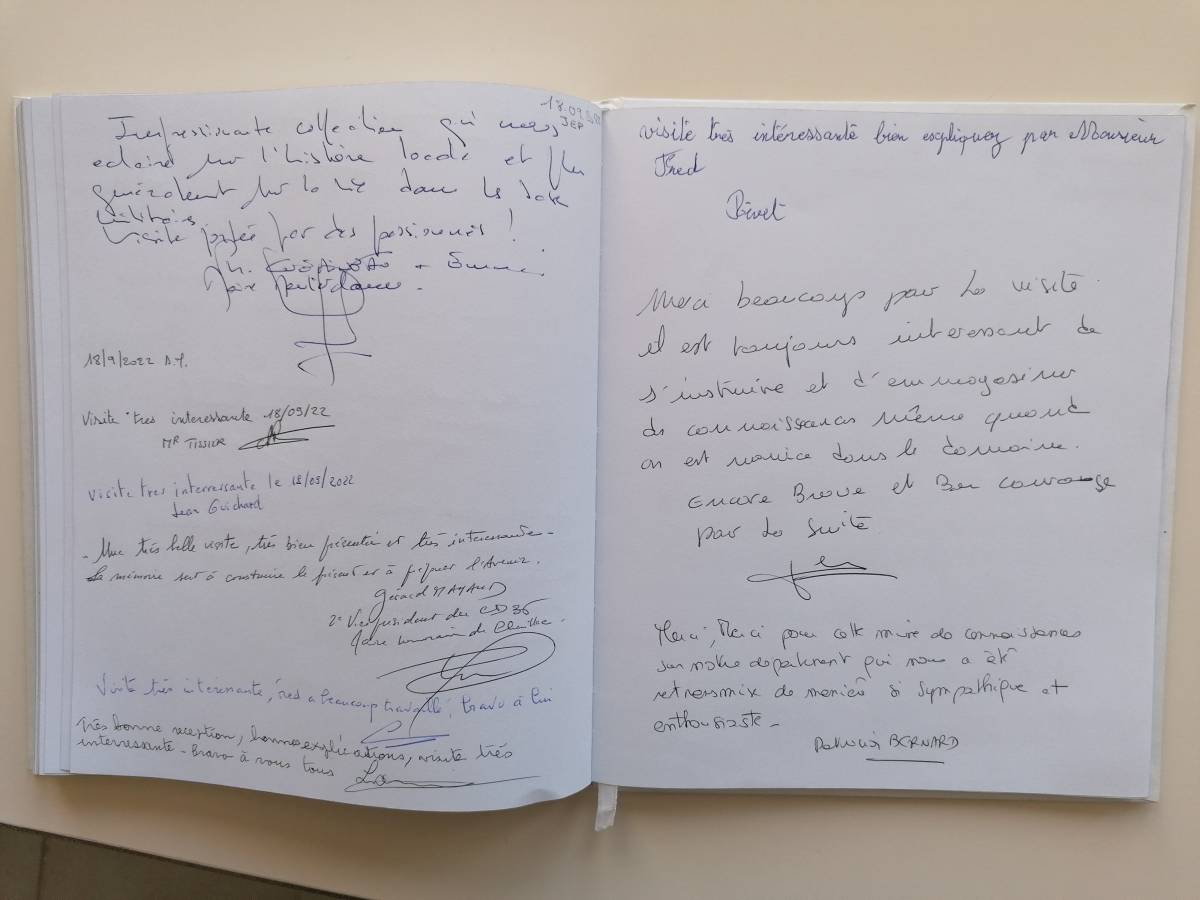 18.09.
JEP
Impressionnante collection qui nous
eclaire sur l'histoire locale et plus
généralement sur la vie dans les
militaires
Visite guidée par des passionnés !
18/9/2022 A.Y.
Visite tres interessante 18/09/22
MR TISSIER
Visite tres interressante le 18/09/2022
Jean Guichard
- Une très belle visite, très bien présentée et très interessante -
La mémoire sert à construire le présent et à préparer l'Avenir.
Gérard MAYAUD
2e Vice président du CD36
Maire honoraire de
Visite très intéressante, Fred a beaucoup travaillé, bravo à lui
Très bonne reception, bonnes explications, visite très
interressante - Bravo à vous tous
visite très intéressante bien expliquez par Monsieur
Fred
Merci beaucoup pour la visite.
il est toujours interessant de
s'instruire et d'emmagasiner
des connaissances même quand
on est novice dans le domaine.
Encore Bravo et Bon courage
pour la suite
Merci, Merci pour cette mine de connaissances
sur notre departement qui nous a été
retransmix de manière si sympathique et
enthousiaste -
BERNARD